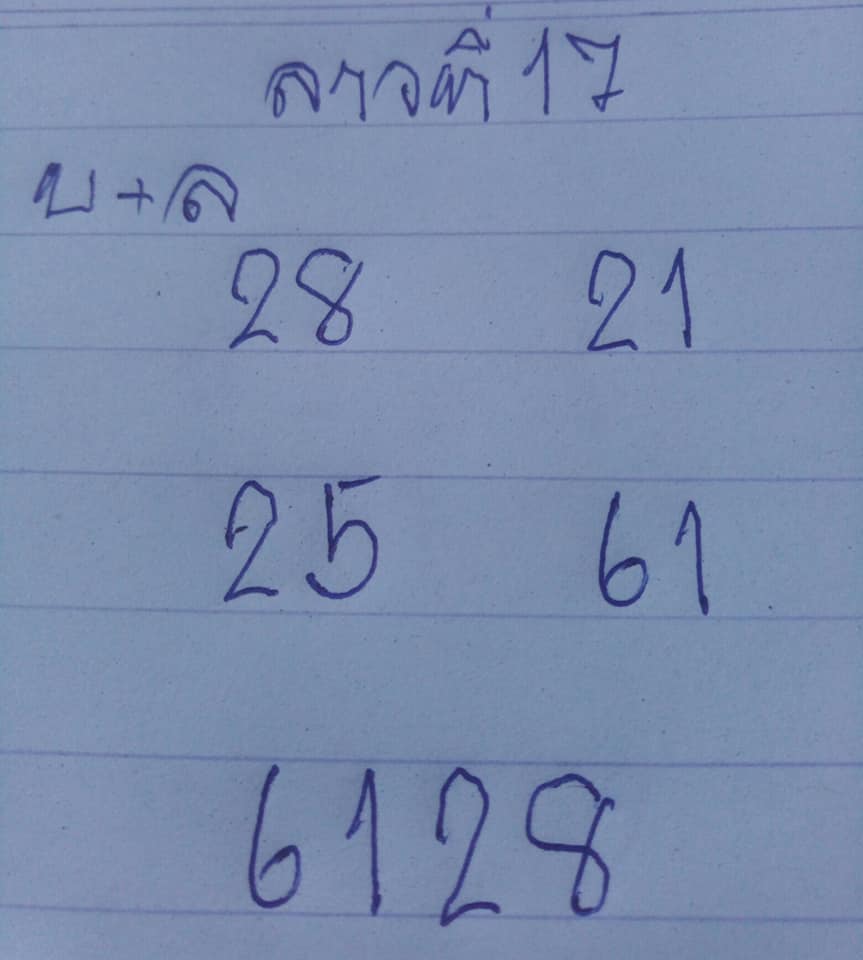 ลาวที่ 17
บ+ล
28 21
25 61
6128